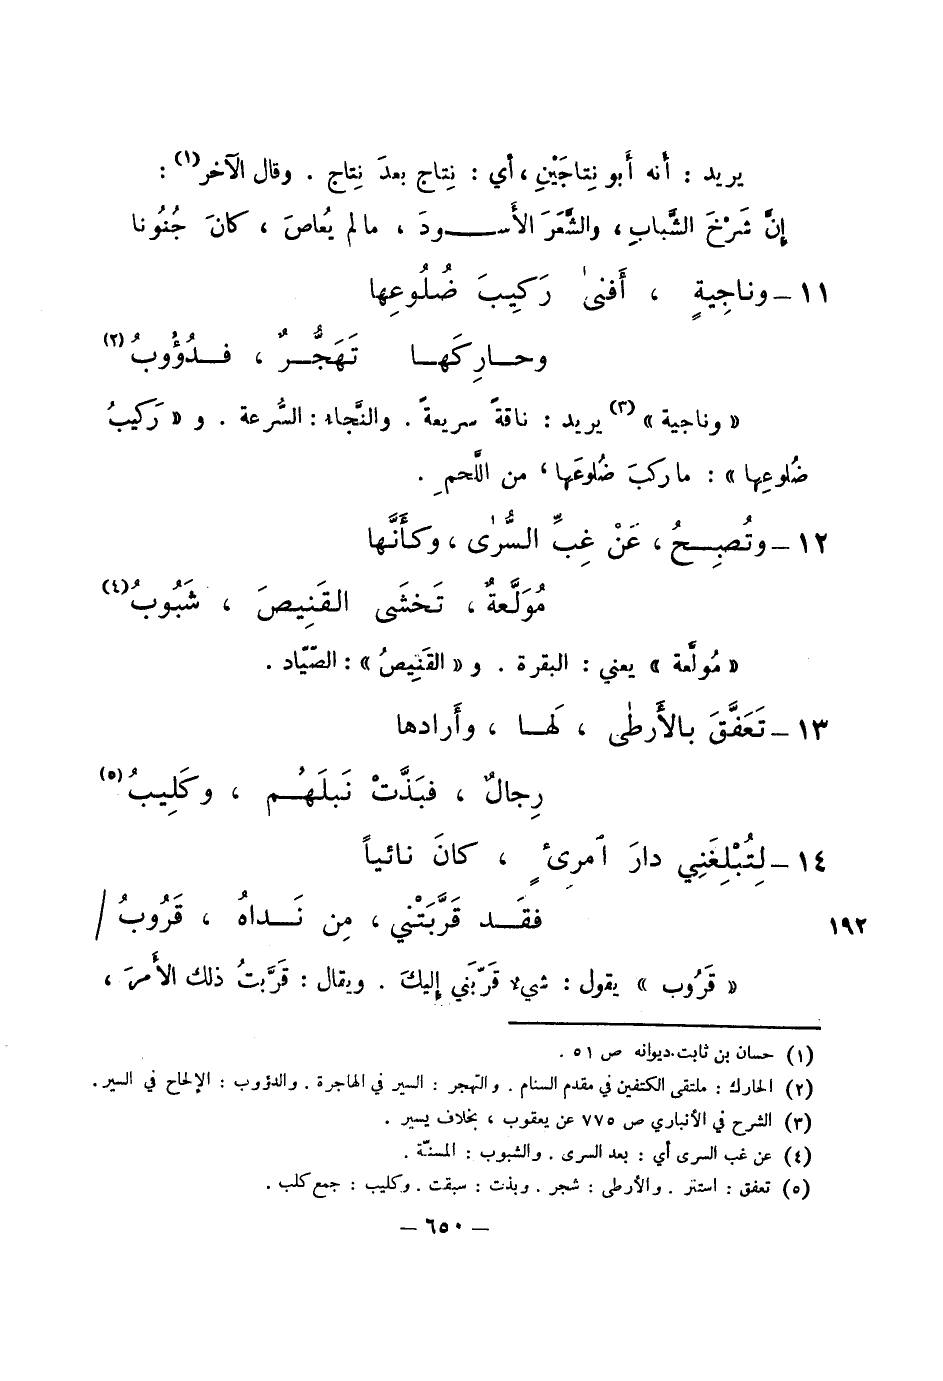 يريد : أنه أبو نِتاجَيْنِ ، أي : نِتاج بعدَ نِتاج . وقال الآخر(١) :
إنَّ شَرْخَ الشَّبابِ ، والشَّعَرَ الأَســـودَ ، مالم يُعاصَ ، كانَ جُنُونا
١١ – وناجِيةٍ ، أَفنىٰ رَكِيبَ ضُلُوعِها
وحـارِكَهـا تَهَجُّـرٌ ، فـدُؤُوبُ(٢)
« وناجية »(٣) يريد : ناقةً سريعةً . والنَّجاء : السُّرعة . و « رَكيبُ
ضُلوعِها » : ماركبَ ضُلوعَها ، من اللَّحمِ .
١٢ – وتُصبِــحُ ، عَنْ غِبِّ السُّرٰى ، وكأَنَّها
مُوَلَّعةٌ ، تَـخشَى القَنِيصَ ، شَبُوبُ(٤)
« مُولَّعة » يعني : البقرة . و « القَنِيصُ » : الصّيّاد .
١٣ – تَعَفَّقَ بـالأَرطٰى ، لَهـا ، وأَرادها
رِجالٌ ، فبَذَّتْ نَبلَهُـم ، وكَلِيبُ(٥)
١٤ – لِتُبْلِغَنِي دارَ ٱمرِئٍ ، كانَ نائياً
فقـد قَرَّبَتْنِي ، مِن نَـداهُ ، قَرُوبُ /
١٩٢
« قَرُوب » يقول : شيء قَرّبَني إليكَ . ويقال : قَرَّبتُ ذلك الأمرَ ،
(١) حسان بن ثابت . ديوانه ص ٥١ .
(٢) الحارك : ملتقى الكتفين في مقدم السنام . والتهجر : السير في الهاجرة . والدؤوب : الإلحاح في السير .
(٣) الشرح في الأنباري ص ٧٧٥ عن يعقوب ، بخلاف يسير .
(٤) عن غب السرى أي : بعد السرى . والشبوب : المسنّة .
(٥) تعفق : استتر . والأرطى : شجر . وبذت : سبقت . وكليب : جمع كلب .
– ٦٥٠ –